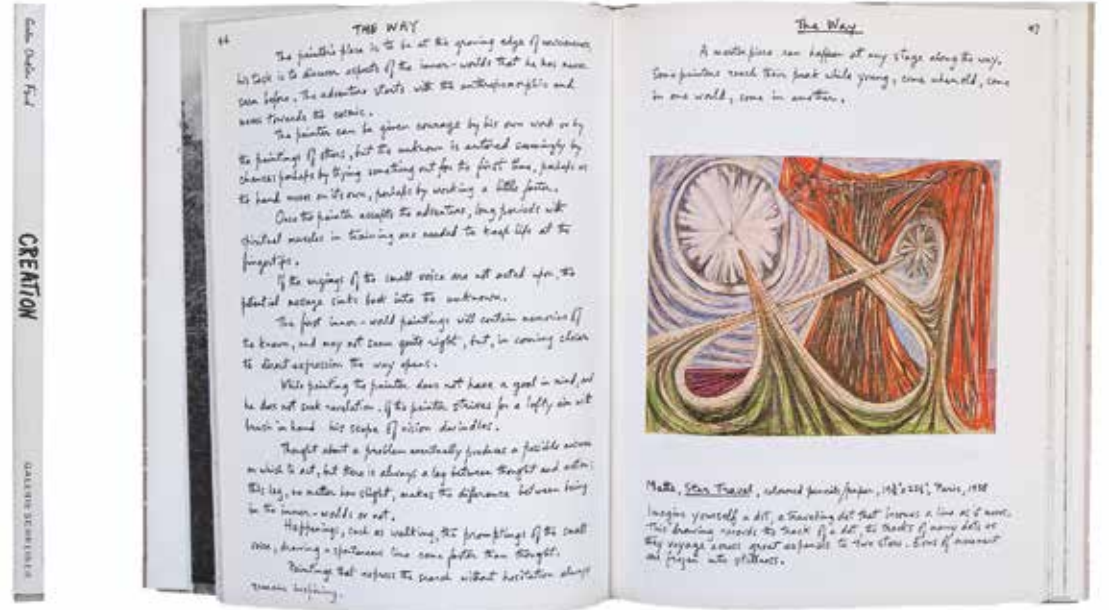 Gordon Onslow Ford
CREATION
GALERIE SCHREINER
46
THE WAY
The painter's place is to be at the growing edge of awareness,
his task is to discover aspects of the inner-worlds that he has never
seen before. The adventure starts with the anthropomorphic and
moves towards the cosmic.
The painter can be given courage by his own work or by
the paintings of others, but the unknown is entered seemingly by
chance: perhaps by trying something out for the first time, perhaps as
the hand moves on its own, perhaps by working a little faster.
Once the painter accepts the adventure, long periods with
spiritual muscles in training are needed to keep life at the
fingertips.
If the urgings of the small voice are not acted upon, the
potential message sinks back into the unknown.
The first inner-world paintings will contain memories of
the known, and may not seem quite right, but, in coming closer
to direct expression the way opens.
While painting the painter does not have a goal in mind, and
he does not seek revelation. If the painter strives for a lofty aim with
brush in hand his scope of vision dwindles.
Thought about a problem eventually produces a possible answer
on which to act, but there is always a lag between thought and action:
this lag, no matter how slight, makes the difference between being
in the inner-worlds or not.
Happenings, such as walking, the promptings of the small
voice, drawing a spontaneous line come faster than thought.
Paintings that express the search without hesitation always
remain inspiring.
The Way
47
A masterpiece can happen at any stage along the way.
Some painters reach their peak while young, some when old, some
in one world, some in another.
Matta, Star Travel, coloured pencils/paper, Paris, 1938
Imagine yourself a dot, a traveling dot that leaves a line as it moves.
This drawing records the track of a dot, the tracks of many dots as
they voyage across great expanses to two stars. Eons of movement
are frozen into stillness.